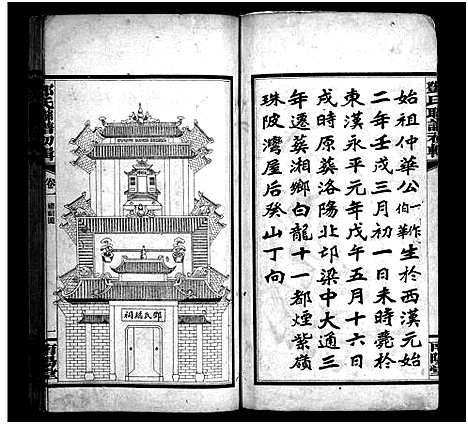 始祖仲華公一作伯華生於西漢元始
二年壬戌三月初一日未時薨於
東漢永平元年戊午五月十六日
戌時原葬洛陽北邙梁中大通三
年遷葬湘鄉白龍十一都煙紫嶺
珠陂灣屋後癸山丁向
鄧氏聯譜初輯
鄧氏聯譜初輯
卷一
鄧氏總祠
南陽堂